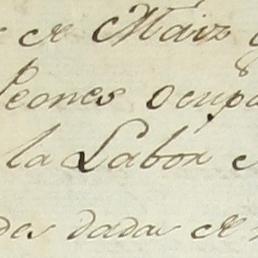 de Maiz
Peones Ocupa
la Labor
des dadas de